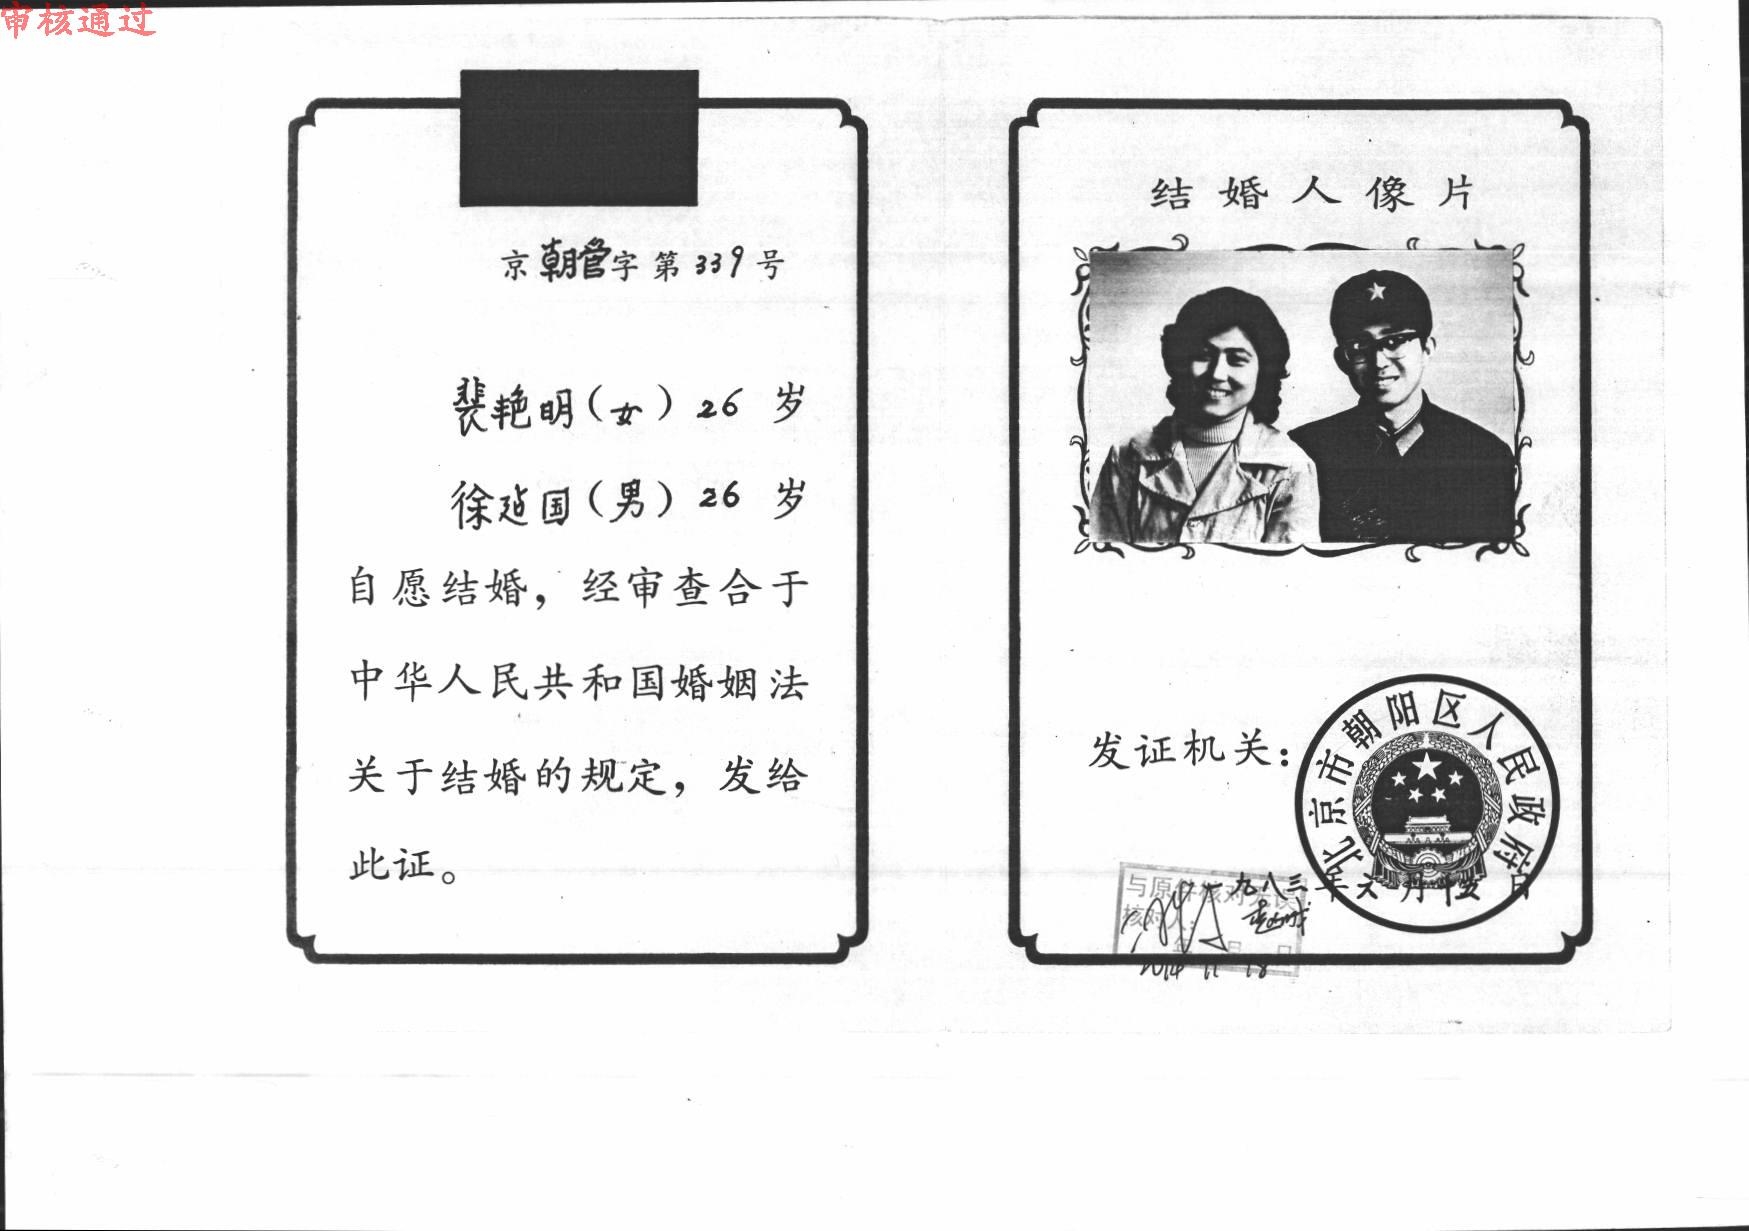 审核通过
京朝管字第339号
裴艳明（女）26岁
徐建国（男）26岁
自愿结婚，经审查合于
中华人民共和国婚姻法
关于结婚的规定，发给
此证。
结婚人像片
发证机关：
北京市朝阳区人民政府
九八三年 月 日
与原件核对无误
核对人：
年 月 日
2014 11 18